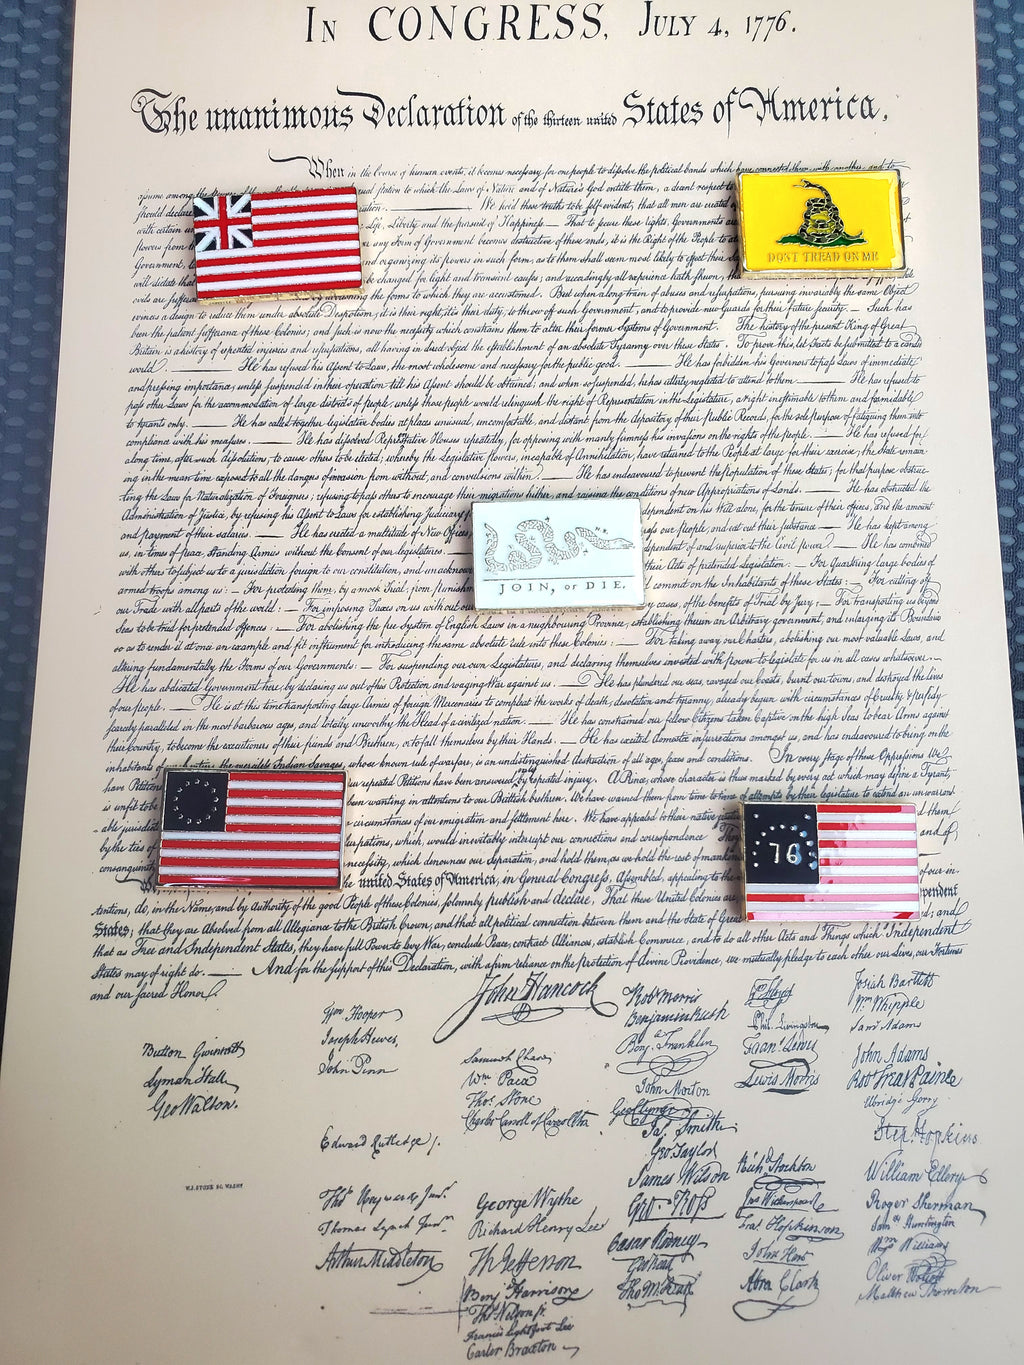 IN CONGRESS, JULY 4, 1776.
The unanimous Declaration of the thirteen united States of America,
When in the course of human events, it becomes necessary for one people to dissolve the political bands which have connected them with another, and to
assume among the
station to which the Laws of Nature and of Nature's God entitle them, a decent respect to
should declare
We hold these truths to be self-evident, that all men are created
with certain
Life, Liberty and the pursuit of Happiness. — That to secure these rights, Governments are
powers from
any Form of Government becomes destructive of these ends, it is the Right of the People to
Government,
organizing its powers in such form, as to them shall seem most likely to effect their
will dictate that
be changed for light and transient causes; and accordingly all experience hath shewn, that
evils are sufferable
the forms to which they are accustomed. But when a long train of abuses and usurpations, pursuing invariably the same Object
evinces a design to reduce them under absolute Despotism, it is their right, it is their duty, to throw off such Government, and to provide new Guards for their future security. — Such has
been the patient sufferance of these Colonies; and such is now the necessity which constrains them to alter their former Systems of Government. The history of the present King of Great
Britain is a history of repeated injuries and usurpations, all having in direct object the establishment of an absolute Tyranny over these States. To prove this, let Facts be submitted to a candid
world. — He has refused his Assent to Laws, the most wholesome and necessary for the public good. — He has forbidden his Governors to pass Laws of immediate
and pressing importance, unless suspended in their operation till his Assent should be obtained; and when so suspended, he has utterly neglected to attend to them. — He has refused to
pass other Laws for the accommodation of large districts of people, unless those people would relinquish the right of Representation in the Legislature, a right inestimable to them and formidable
to tyrants only. — He has called together legislative bodies at places unusual, uncomfortable, and distant from the depository of their public Records, for the sole purpose of fatiguing them into
compliance with his measures. — He has dissolved Representative Houses repeatedly, for opposing with manly firmness his invasions on the rights of the people. — He has refused for
along time, after such dissolutions, to cause others to be elected; whereby the Legislative powers, incapable of Annihilation, have returned to the People at large for their exercise; the State remain-
ing in the mean time exposed to all the dangers of invasion from without, and convulsions within. — He has endeavoured to prevent the Population of these States; for that purpose obstruc-
ting the Laws for Naturalization of Foreigners; refusing to pass others to encourage their migrations hither, and raising the conditions of new Appropriations of Lands. — He has obstructed the
Administration of Justice, by refusing his Assent to Laws for establishing Judiciary
dependent on his Will alone, for the tenure of their offices, and the amount
and payment of their salaries. — He has erected a multitude of New Offices,
our people, and eat out their substance — He has kept among
us, in times of peace, Standing Armies without the Consent of our legislatures.
independent of and superior to the Civil power. — He has combined
with others to subject us to a jurisdiction foreign to our constitution, and unacknow
their Acts of pretended Legislation: — For Quartering large bodies of
armed troops among us: — For protecting them, by a mock Trial, from punishmen
commit on the Inhabitants of these States: — For cutting off
our Trade with all parts of the world: — For imposing Taxes on us without our
cases, of the benefits of Trial by Jury: — For transporting us beyond
Seas to be tried for pretended offences: — For abolishing the free System of English Laws in a neighbouring Province, establishing therein an Arbitrary government, and enlarging its Boundaries
so as to render it at once an example and fit instrument for introducing the same absolute rule into these Colonies: — For taking away our Charters, abolishing our most valuable Laws, and
altering fundamentally the Forms of our Governments: — For suspending our own Legislatures, and declaring themselves invested with power to legislate for us in all cases whatsoever. —
He has abdicated Government here, by declaring us out of his Protection and waging War against us. — He has plundered our seas, ravaged our Coasts, burnt our towns, and destroyed the lives
of our people. — He is at this time transporting large Armies of foreign Mercenaries to compleat the works of death, desolation and tyranny, already begun with circumstances of Cruelty & perfidy
scarcely paralleled in the most barbarous ages, and totally unworthy the Head of a civilized nation. — He has constrained our fellow Citizens taken Captive on the high Seas to bear Arms against
their Country, to become the executioners of their friends and Brethren, or to fall themselves by their Hands. — He has excited domestic insurrections amongst us, and has endeavoured to bring on the
inhabitants of the merciless Indian Savages, whose known rule of warfare, is an undistinguished destruction of all ages, sexes and conditions. In every stage of these Oppressions We
have Petition
repeated Petitions have been answered only by repeated injury. A Prince, whose character is thus marked by every act which may define a Tyrant,
is unfit to be
been wanting in attentions to our Brittish brethren. We have warned them from time to time of attempts by their legislature to extend an unwarrant
-able jurisdict
circumstances of our emigration and settlement here. We have appealed to their native justice
by the ties of
usurpations, which, would inevitably interrupt our connections and correspondence. They
and of
consanguinity.
necessity, which denounces our Separation, and hold them, as we hold the rest of mankin
We,
united States of America, in General Congress, Assembled, appealing to the
of our in-
tentions, do, in the Name, and by Authority of the good People of these Colonies, solemnly publish and declare, That these United Colonies are,
pendent
States; that they are Absolved from all Allegiance to the British Crown, and that all political connection between them and the State of Great
d; and
that as Free and Independent States, they have full Power to levy War, conclude Peace, contract Alliances, establish Commerce, and to do all other Acts and Things which Independent
States may of right do. — And for the support of this Declaration, with a firm reliance on the protection of divine Providence, we mutually pledge to each other our Lives, our Fortunes
and our sacred Honor.
DON'T TREAD ON ME
JOIN, or DIE.
76
John Hancock
Button Gwinnett
Lyman Hall
Geo Walton.
Wm Hooper
Joseph Hewes,
John Penn
Edward Rutledge
Thos Heyward Junr.
Thomas Lynch Junr.
Arthur Middleton
Samuel Chase
Wm. Paca
Thos. Stone
Charles Carroll of Carrollton
George Wythe
Richard Henry Lee
Th Jefferson
Benj Harrison
Thos Nelson jr.
Francis Lightfoot Lee
Carter Braxton
Robt Morris
Benjamin Rush
Benj. Franklin
John Morton
Geo Clymer
Jas. Smith
Geo. Taylor
James Wilson
Geo. Ross
Caesar Rodney
Geo Read
Tho M:Kean
Phil. Livingston
Frans. Lewis
Lewis Morris
Richd. Stockton
Jno Witherspoon
Fras. Hopkinson
John Hart
Abra Clark
Josiah Bartlett
Wm. Whipple
Saml Adams
John Adams
Robt Treat Paine
Elbridge Gerry
Step. Hopkins
William Ellery
Roger Sherman
Saml Huntington
Wm. Williams
Oliver Wolcott
Matthew Thornton
W.J. STONE SC. WASHN